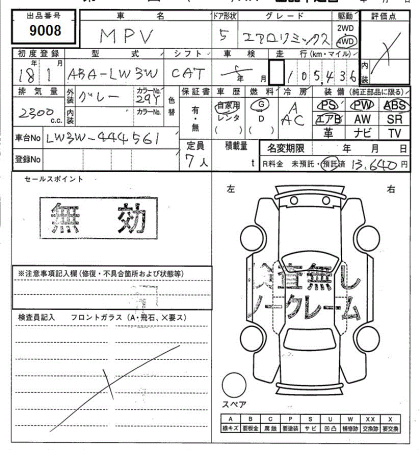 出品番号 車名 ドア形状 グレード 駆動 評価点
9008 MPV 5 エアロリミックス 2WD 4WD
初度登録 型式 シフト 車検 走行(km・マイル)
18年 1月 ABA-LW3W CAT 年 月 105,436
排気量 外装 グレー カラーNo. 29Y 色替 保証書 車歴 燃料 冷房 装備(純正部品に限る)
2300 c.c. 内装 カラーNo. 有・無 自家用 レンタ ( ) G D ( ) A AC PS PW ABS
エアB AW SR
革 ナビ TV
車台No LW3W-444561 定員 7人 積載量 t 名変期限 年 月 日
登録No R料金 未預託・預託済 13,640円
セールスポイント
無効
左 右
検査無し
ノークレーム
※注意事項記入欄(修復・不具合箇所および状態等)
検査員記入 フロントガラス(A・飛石、X要ス)
スペア
A B C P S U W X XX
線キズ 要板金 腐 要塗装 サビ 凹凸 補修跡 交換跡 要交換